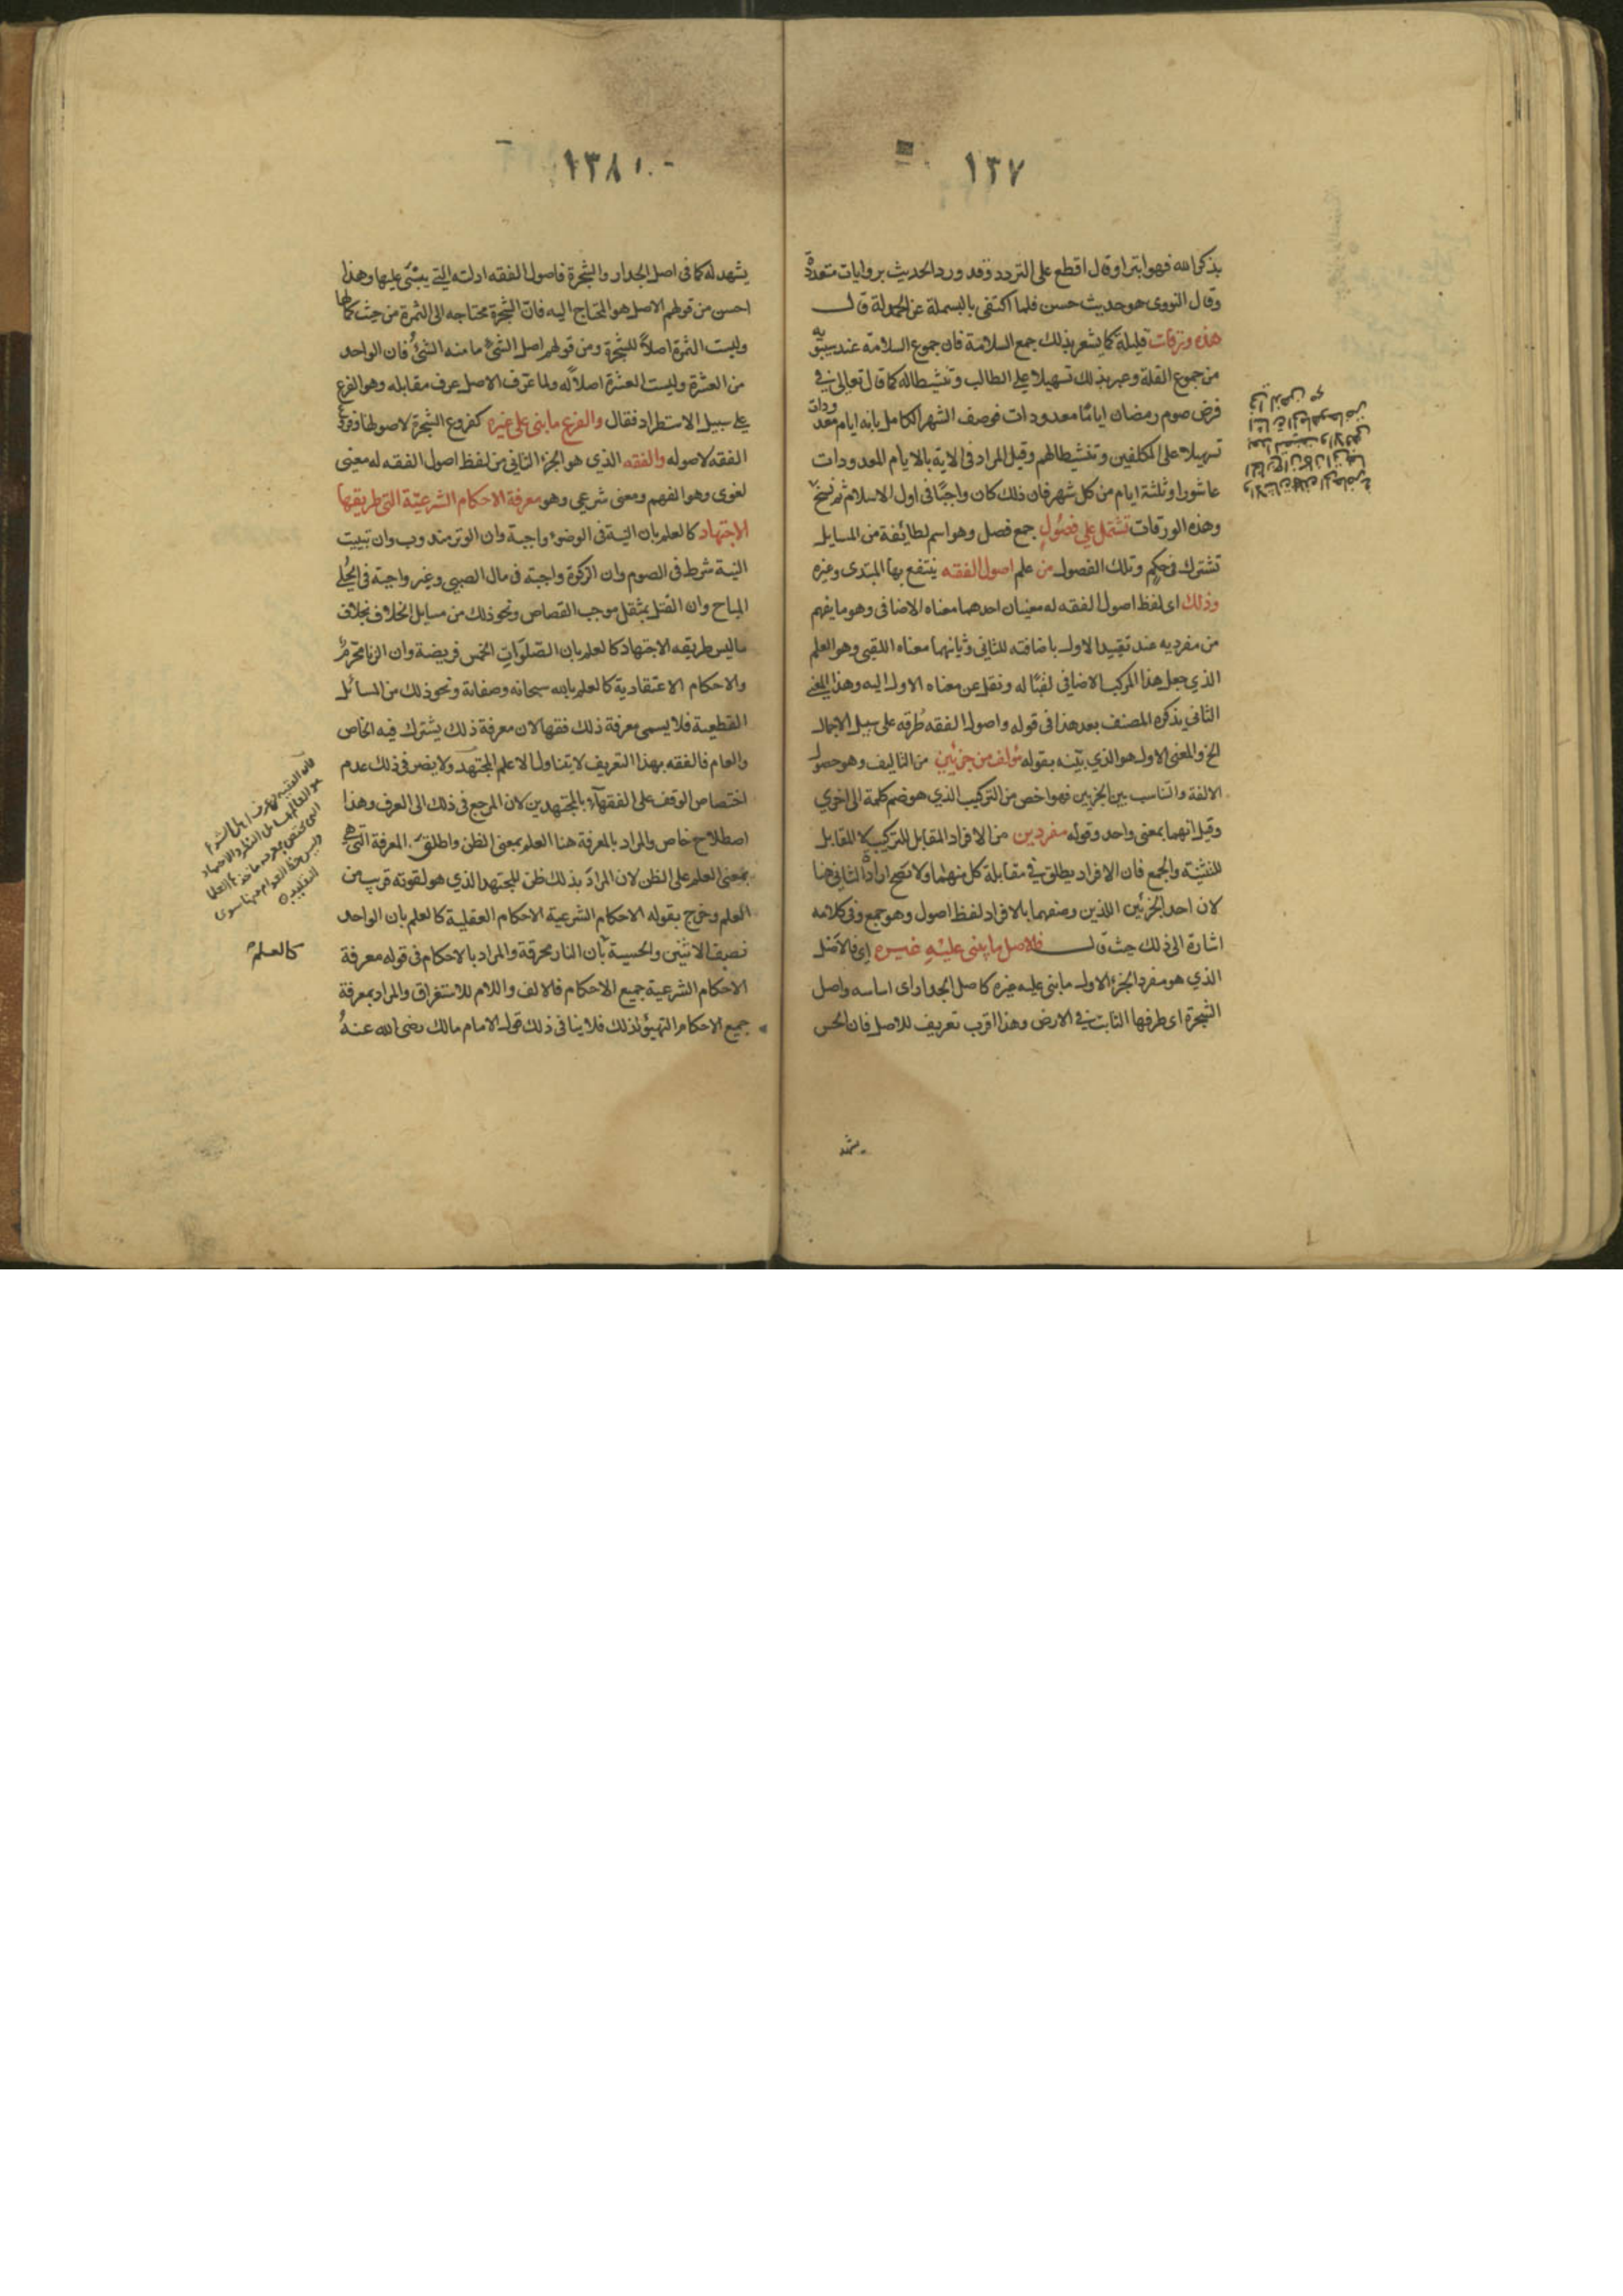 ١٣٧
بذكر الله فهو ابتر او قال اقطع على التردد وقد ورد الحديث بروايات متعددة
وقال النووى هو حديث حسن فلما اكتفى بالبسملة عن الحمدلة قال
هذه ورقات قليلة كما يشعر بذلك جمع السلامة فان جموع السلامة عند سيبويه
من جموع القلة وعبر بذلك تسهيلا على الطالب وتنشيطا له كما قال تعالى في
فرض صوم رمضان اياما معدودات فوصف الشهر الكامل بانه ايام معدودات
تسهيلا على المكلفين وتنشيطا لهم وقيل المراد فى الاية بالايام المعدودات
عاشورا وثلثة ايام من كل شهر فان ذلك كان واجبا فى اول الاسلام ثم نسخ
وهذه الورقات تشتمل على فصول جمع فصل وهو اسم لطايفة من المسايل
تشترك فى حكم وتلك الفصول من علم اصول الفقه ينتفع بها المبتدى وغيره
وذلك اى لفظ اصول الفقه له معنيان احدهما معناه الاضافى وهو ما يفهم
من مفرديه عند تقييد الاول باضافته للثانى وثانيهما معناه اللقبى وهو العلم
الذي جعل هذا المركب الاضافى لقبا له ونقل عن معناه الاول اليه وهذا المعنى
الثانى يذكره المصنف بعد هذا فى قوله واصول الفقه طرقه على سبيل الاجمال
الخ والمعنى الاول هو الذي بيّنه بقوله مؤلف من جزئين من التاليف وهو حصول
الالفة والتناسب بين الجزيين فهو اخص من التركيب الذي هو ضم كلمة الى اخري
وقيل انهما بمعنى واحد وقوله مفردين من الافراد المقابل للتركيب لا المقابل
للتثنية والجمع فان الافراد يطلق في مقابلة كل منهما ولا تصح ارادة الثانى هنا
لان احد الجزئين اللذين وصفهما بالافراد لفظ اصول وهو جمع وفى كلامه
اشارة الى ذلك حيث قال فالاصل ما بنى عليه غيره اى فالاصل
الذي هو مفرد الجزء الاول ما بنى عليه غيره كاصل الجدار اى اساسه واصل
الشجرة اى طرفها الثابت في الارض وهذا اقرب تعريف للاصل فان الحس
يشهد
١٣٨
يشهد له كما فى اصل الجدار والشجرة فاصول الفقه ادلته التي يبتنى عليها وهذا
احسن من قولهم الاصل هو المحتاج اليه فان الشجرة محتاجه الى الثمرة من حيث كمالها
وليست الثمرة اصلا للشجرة ومن قولهم اصل الشئ ما منه الشئ فان الواحد
من العشرة وليست العشرة اصلا له ولما عرّف الاصل عرف مقابله وهو الفرع
على سبيل الاستطراد فقال والفرع ما بنى على غيره كفروع الشجرة لاصولها وفروع
الفقه لاصوله والفقه الذي هو الجزء الثانى من لفظ اصول الفقه له معنى
لغوى وهو الفهم ومعنى شرعى وهو معرفة الاحكام الشرعيّة التى طريقها
الاجتهاد كالعلم بان النية فى الوضوء واجبة وان الوتر مندوب وان تبييت
النية شرط فى الصوم وان الزكوة واجبة فى مال الصبى وغير واجبة فى الحلي
المباح وان القتل بمثقل موجب القصاص ونحو ذلك من مسايل الخلاف بخلاف
ما ليس طريقه الاجتهاد كالعلم بان الصلوات الخمس فريضة وان الزنا محرم
والاحكام الاعتقادية كالعلم بالله سبحانه وصفاته ونحو ذلك من المسائل
القطعية فلا يسمى معرفة ذلك فقها لان معرفة ذلك يشترك فيه الخاص
والعام فالفقه بهذا التعريف لا يتناول الا علم المجتهد ولا يضر فى ذلك عدم
اختصاص الوقف على الفقهآء بالمجتهدين لان المرجع فى ذلك الى العرف وهذا
اصطلاح خاص والمراد بالمعرفة هنا العلم بمعنى الظن واطلق المعرفة التي هى
بمعنى العلم على الظن لان المراد بذلك ظن المجتهد الذي هو لقوته قريب من
العلم وخرج بقوله الاحكام الشرعية الاحكام العقلية كالعلم بان الواحد
نصف الاثنين والحسية بان النار محرقة والمراد بالاحكام فى قوله معرفة
الاحكام الشرعية جميع الاحكام فالالف واللام للاستغراق والمراد بمعرفة
جميع الاحكام التهيؤ لذلك فلا ينافى ذلك قول الامام مالك رضى الله عنه
كالعلم